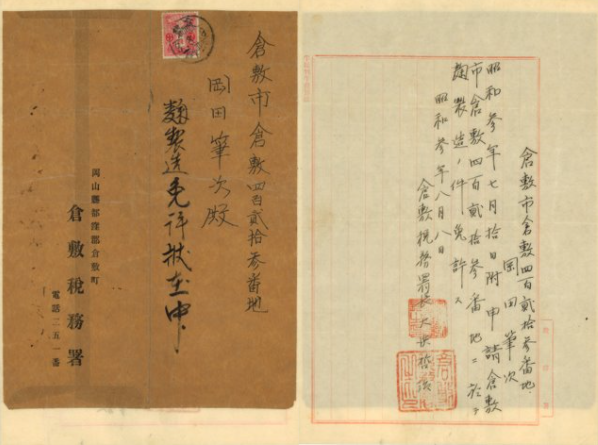 倉敷市倉敷四百貳拾參番地
岡田筆次殿
麹製造免許状在中
岡山縣都窪郡倉敷町
倉敷税務署
電話二五一番
倉敷市倉敷四百貳拾參番地
岡田筆次
昭和參年七月拾日附申請倉敷
市倉敷四百貳拾參番地ニ於テ
麹製造ノ件免許ス
昭和參年八月八日
倉敷税務署長